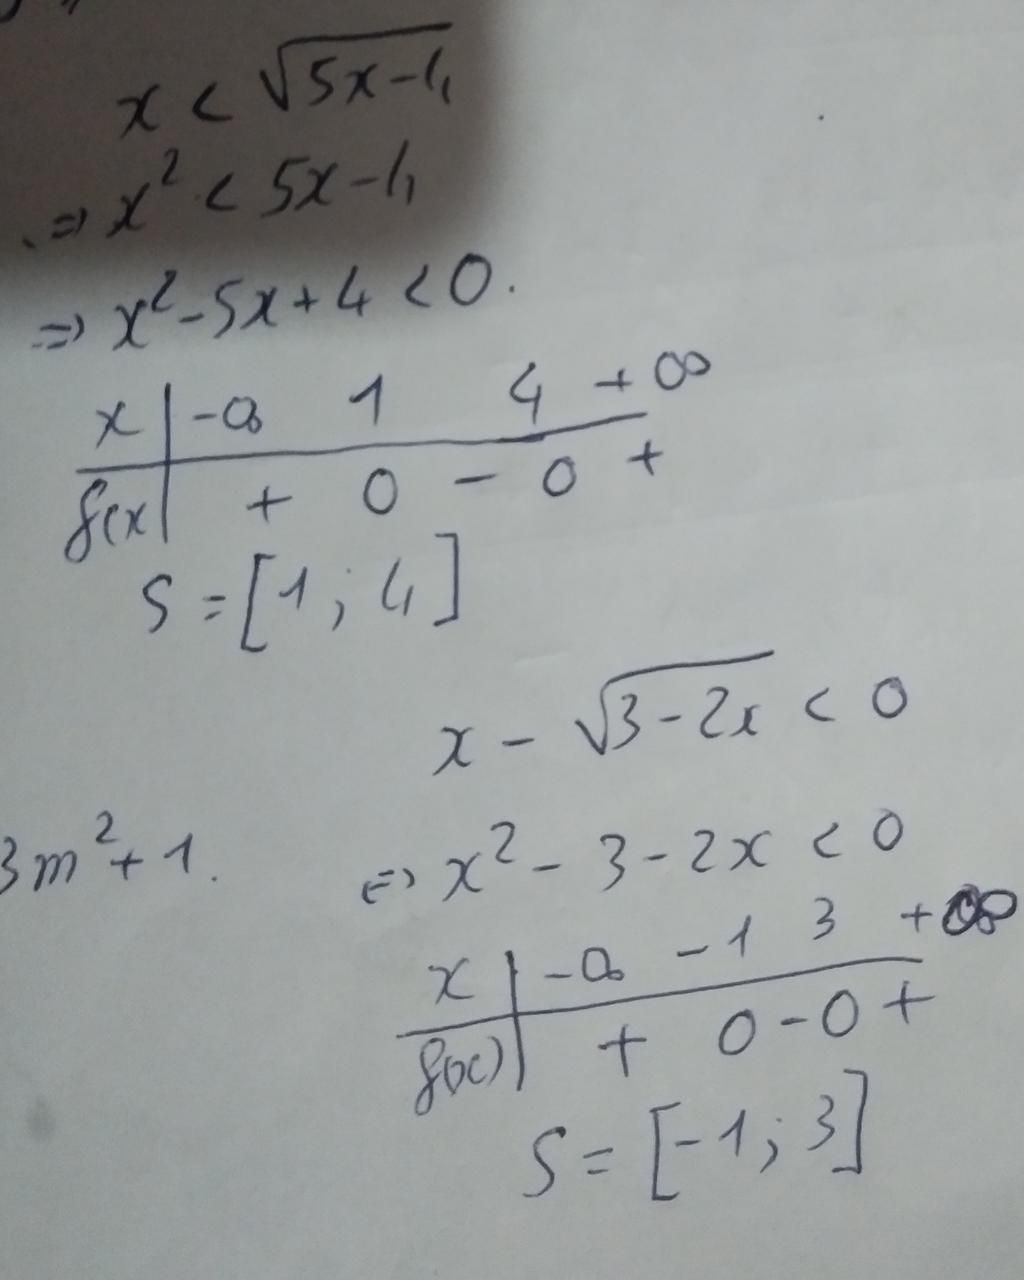 x < √(5x-4)
=> x² < 5x-4
=> x² - 5x + 4 < 0.
x | -∞ 1 4 +∞
f(x | + 0 - 0 +
S = [1 ; 4]
x - √(3-2x) < 0
3m² + 1.
<=> x² - 3 - 2x < 0
x | -∞ -1 3 +∞
f(x) | + 0 - 0 +
S = [-1 ; 3]